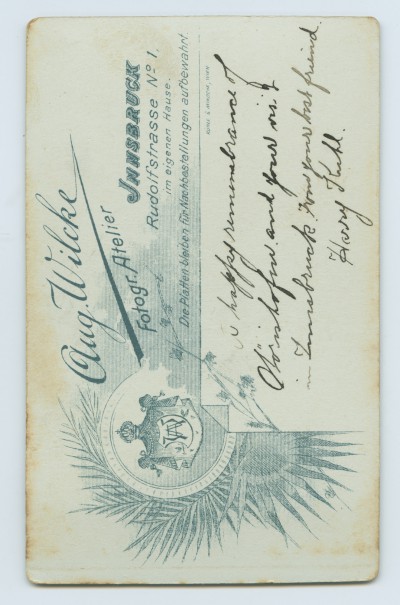 Aug. Wilcke
Fotogr. Atelier
INNSBRUCK
Rudolfstrasse No 1,
im eigenen Hause.
Die Platten bleiben für Nachbestellungen aufbewahrt.
WIEN
happy remembrance of
and your visit
in Innsbruck from your best friend
Harry
AW